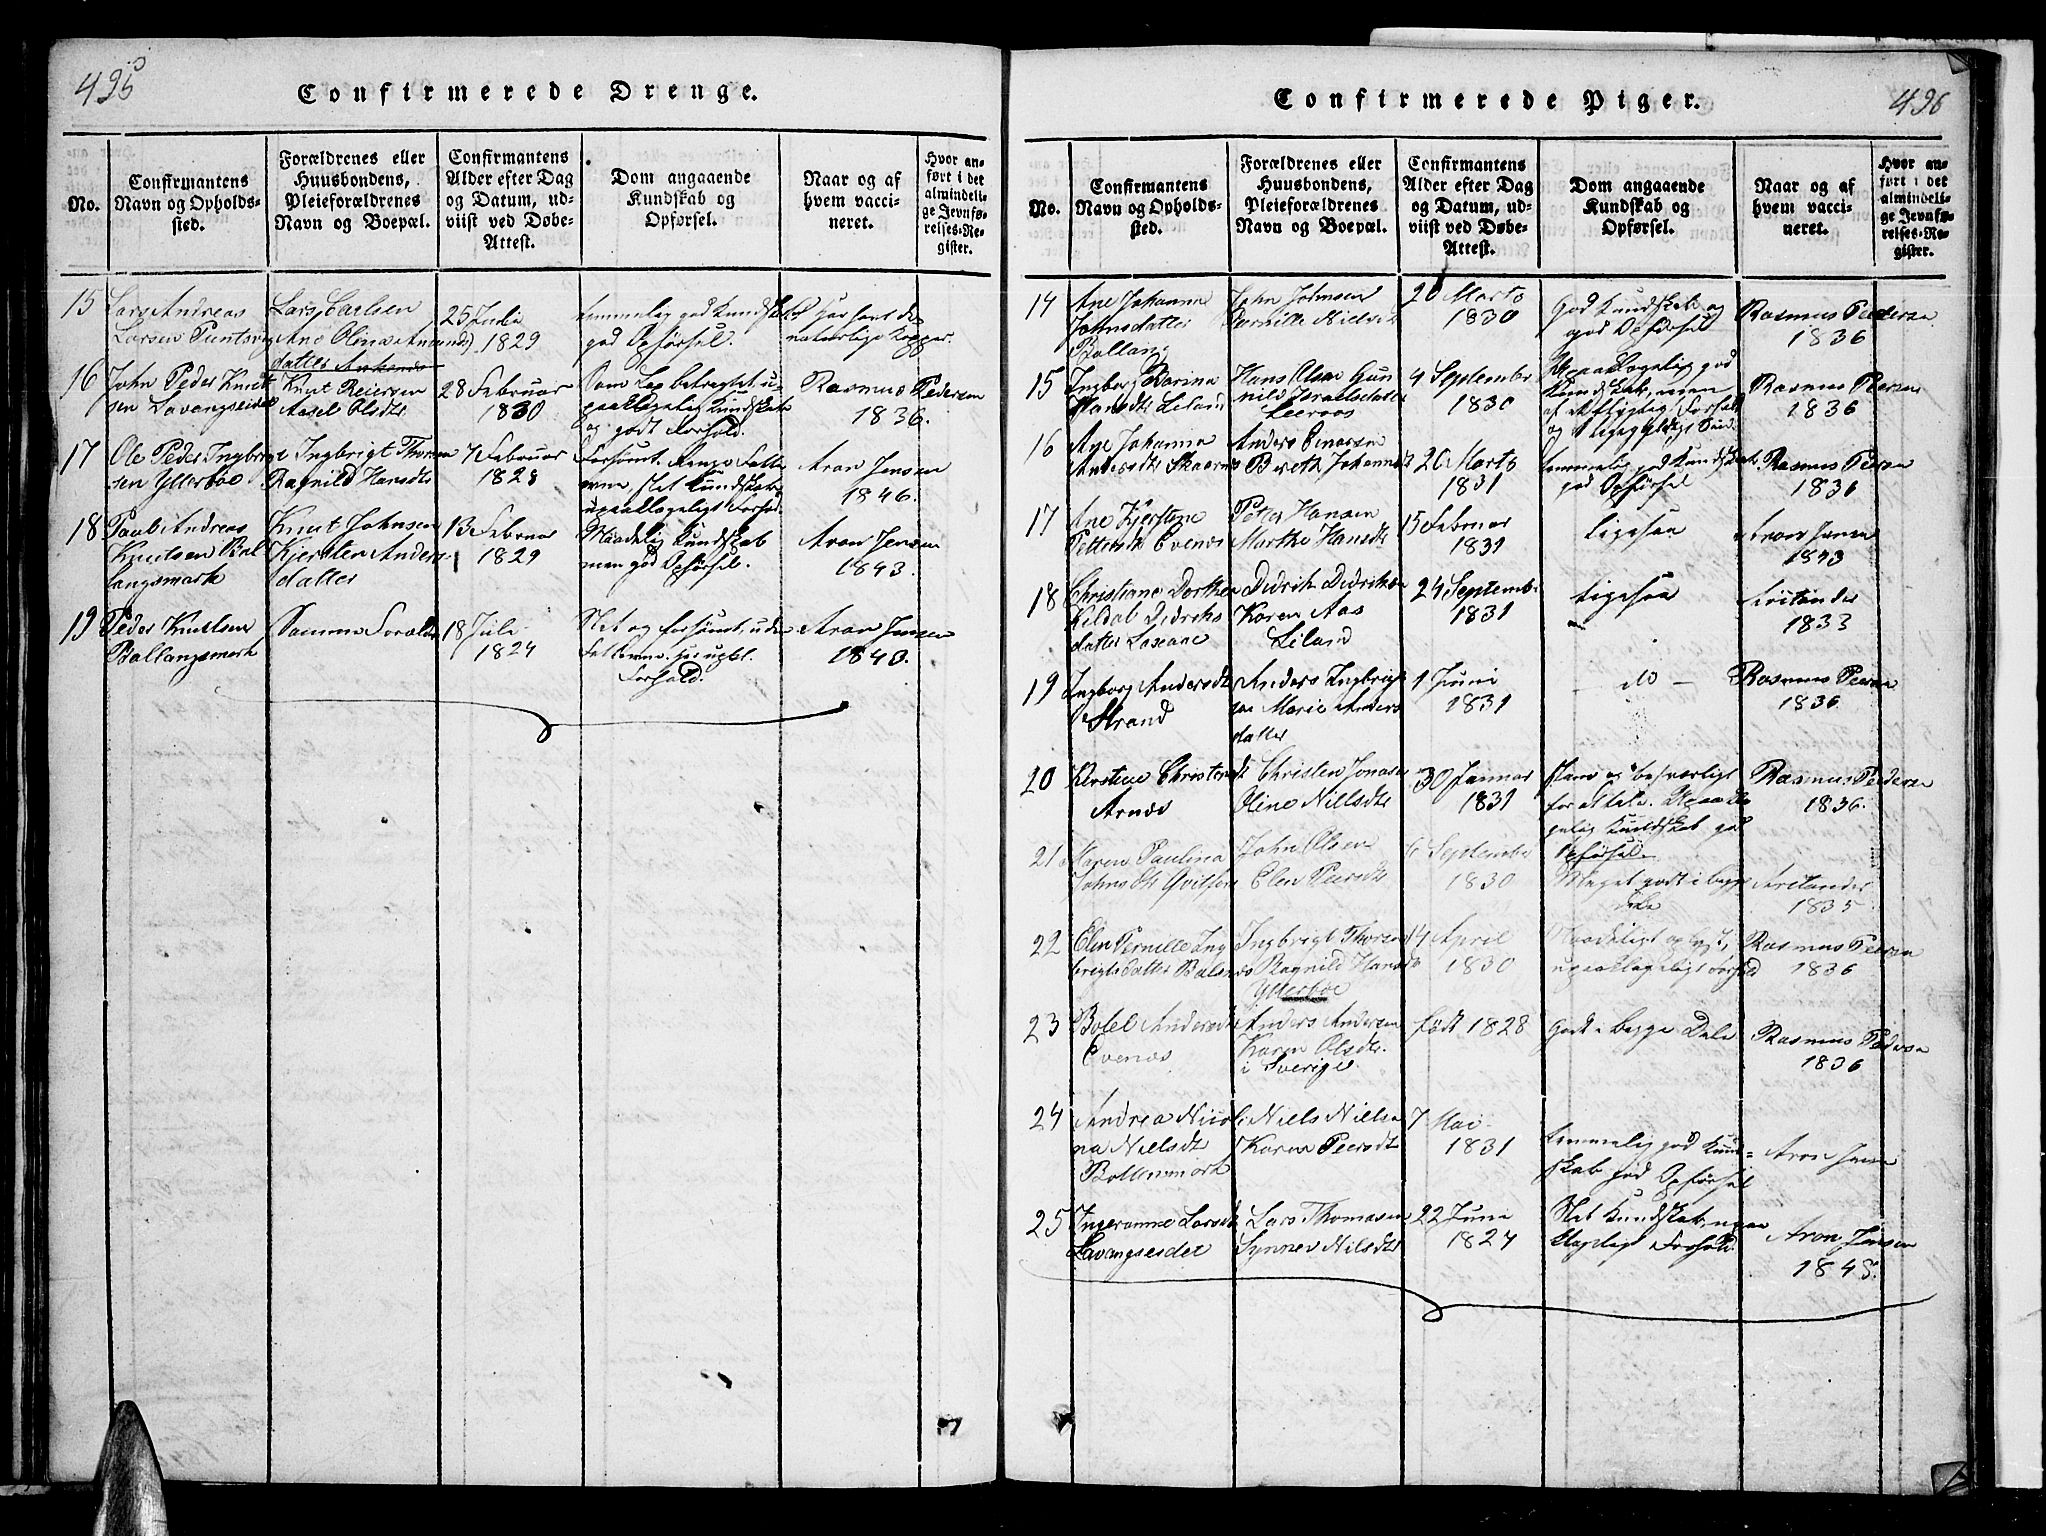 495
Confirmerede Drenge.
No.
Confirmantens
Navn og Opholds-
sted.
Forældrenes eller
Huusbondens,
Pleieforældrenes
Navn og Boepæl.
Confirmantens
Alder efter Dag
og Datum, ud-
viist ved Døbe-
Attest.
Dom angaaende
Kundskab og
Opførsel.
Naar og af
hvem vacci-
neret.
Hvor an-
ført i det
almindeli-
ge Jevnfø-
relses-Re-
gister.
15
Lars Andreas
Larsen
Lars Carlsen
Ane Oline Amunds
datter
25 Juli
1829
temmelig god Kundskab
god Opførsel.
har havt de
naturlige Kopper.
16
John Peder Knut
sen Lavangseidet
Knut Reiersen
Aasel Olsdtr
28 Februar
1830
Som Lap betragtet, u-
paaklagelig Kundskab
og godt Forhold.
Rasmus Pedersen
1836.
17
Ole Peder Ingbrigt
sen Ytterboe
Ingbrigt Thorsen
Ragnild Hansdtr
7 Februar
1828
Forsømt, ringe Fatte
evne, slet Kundskab,
upaaklageligt Forhold.
Aron Jensen
1846.
18
Paul Andreas
Knutsen Bal
langsmark
Knut Johnsen
Kjersten Anders
datter
13 Februar
1829
Maadelig Kundskab
men god Opførsel.
Aron Jensen
1843.
19
Peder Knutsen
Ballangsmark
Samme Foræld
18 Juli
1824
Slet og forsømt, uden
Fatteevne.
Forhold.
Aron Jensen
1843.
496
Confirmerede Piger.
No.
Confirmantens
Navn og Opholds-
sted.
Forældrenes eller
Huusbondens,
Pleieforældrenes
Navn og Boepæl.
Confirmantens
Alder efter Dag
og Datum, ud-
viist ved Døbe-
Attest.
Dom angaaende
Kundskab og
Opførsel.
Naar og af
hvem vacci-
neret.
Hvor an-
ført i det
almindeli-
ge Jevnfø-
relses-Re-
gister.
14
Ane Johanna
Johnsdatter
Ballang
John Johnsen
Pernille Nielsdtr
20 Marts
1830
God Kundskab og
god Opførsel
Rasmus Pedersen
1836
15
Ingborg Karina
Hansdtr Leiland
Hans Olsen Gun
nild Israelsdatter
4 September
1830
Upaaklagelig god
Kundskab, men
af et flygtig Forhold
og ligegyldigt Sind.
Rasmus Peersen
1836
16
Ane Johanna
Andersdtr
Anders Einarsen
Bereth Johannesdtr
26 Marts
1831
temmelig god Kundskab.
god Opførsel
Rasmus Peersen
1836
17
Ane Kjerstine
Pettersdtr Evenæs
Petter Hansen
Marthe Hansdtr
15 Februar
1831
ligesaa
Aron Jensen
1843
18
Christiane Dorthea
Kildal Didriks
datter
Didrik Didriksen
Karen Aas
Leiland
24 Septembr
1831
ligesaa
1833
19
Ingborg Andersdtr
Strand
Anders Ingbrigt
sen Marie Anders
datter
1 Juni
1831
- do -
Rasmus Peersen
1836
20
Kerstine Christensdt
Arnæs
Christen Jonasen
Oline Nielsdtr
30 Januar
1831
stam og besværligt
for at tale. Upaakla
gelig Kundskab god
Opførsel
Rasmus Pedersen
1836.
21
Maren Paulina
Johnsdtr
John Olsen
Elen Peersdtr
6 September
1830
Meget godt i begge
Dele
1835
22
Elen Pernille Ing
brigtsdatter Balsnæs
Ingbrigt Thorsen
Ragnild Hansdtr
Ytterboe
14 April
1830
Maadeligt oplyst,
upaaklageligt Forhold
Rasmus Peersen
1836
23
Bolel Andersdtr
Evenæs
Anders Andersen
Karen Olsdtr.
i Sverige
født 1828
Godt i begge Dele
Rasmus Pedersen
1836
24
Andrea Nicoli
na Nielsdtr
Bottenmark
Niels Nielsen
Karen Peersdtr
7 Mai
1831
temmelig god Kund-
skab god Opførsel
Aron Jensen
25
Ingeranna Larsdtr
Lavangseidet
Lars Thomasen
Synnev Nilsdtr
22 Juni
1827
Slet Kundskab, upaa
klageligt Forhold.
Aron Jensen
1845.